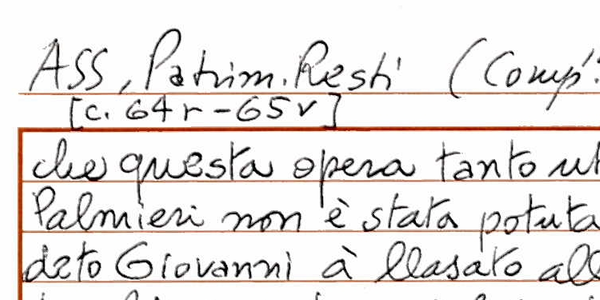 ASS, Patrim. Resti (Comp.
[c. 64r-65v]
che questa opera tanto ut
Palmieri non è stata potuta
deto Giovanni à llasato all